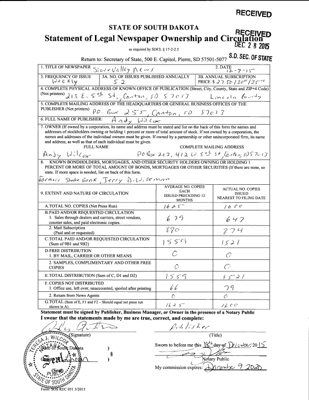 RECEIVED
STATE OF SOUTH DAKOTA
Statement of Legal Newspaper Ownership and Circulation
RECEIVED
DEC 28 2015
as required by SDCL § 17-2-2.5
S.D. SEC. OF STATE
Return to: Secretary of State, 500 E. Capitol, Pierre, SD 57501-5077
1. TITLE OF NEWSPAPER
Sioux Valley News
2. DATE
3. FREQUENCY OF ISSUE
Weekly
3A. NO. OF ISSUES PUBLISHED ANNUALLY
52
3B. ANNUAL SUBSCRIPTION
PRICE $
4. COMPLETE PHYSICAL ADDRESS OF KNOWN OFFICE OF PUBLICATION (Street, City, County, State and ZIP+4 Code)
(Not printers)
5th St, Canton, SD 57013 Lincoln County
5. COMPLETE MAILING ADDRESS OF THE HEADQUARTERS OR GENERAL BUSINESS OFFICES OF THE
PUBLISHER (Not printer)
PO Box 255, Canton, SD 57013
6. FULL NAME OF PUBLISHER:
7. OWNER (If owned by a corporation, its name and address must be stated and list on the back of this form the names and
addresses of stockholders owning or holding 1 percent or more of total amount of stock. If not owned by a corporation, the
names and addresses of the individual owners must be given. If owned by a partnership or other unincorporated firm, its name
and address, as well as that of each individual must be given.
FULL NAME
COMPLETE MAILING ADDRESS
8. KNOWN BONDHOLDERS, MORTGAGES, AND OTHER SECURITY HOLDERS OWNING OR HOLDING 1
PERCENT OR MORE OF TOTAL AMOUNT OF BONDS, MORTGAGES OR OTHER SECURITIES (If there are none, so
state. If more space is needed, list on back of this form.
9. EXTENT AND NATURE OF CIRCULATION
AVERAGE NO. COPIES
EACH
ISSUED PRECEDING 12
MONTHS
ACTUAL NO. COPIES
ISSUED
NEAREST TO FILING DATE
A. TOTAL NO. COPIES (Net Press Run)
1625
1600
B. PAID AND/OR REQUESTED CIRCULATION
1. Sales through dealers and carriers, street vendors,
counter sales, and paid electronic copies.
679
647
2. Mail Subscription
(Paid and or requested)
880
874
C. TOTAL PAID AND/OR REQUESTED CIRCULATION
(Sum of 9B1 and 9B2)
1559
1521
D. FREE DISTRIBUTION
1. BY MAIL, CARRIER OR OTHER MEANS
0
0
2. SAMPLES, COMPLIMENTARY AND OTHER FREE
COPIES
0
0
E. TOTAL DISTRIBUTION (Sum of C, D1 and D2)
1559
1521
F. COPIES NOT DISTRIBUTED
1. Office use, left over, unaccounted, spoiled after printing
66
79
2. Return from News Agents
0
0
G. TOTAL (Sum of E, F1 and F2 - Should equal net press run
shown in A)
1625
1600
Statement must be signed by Publisher, Business Manager, or Owner in the presence of a Notary Public
I swear that the statements made by me are true, correct, and complete:
Publisher
(Signature)
(Title)
State of South Dakota
Sworn to before me this 18th day of December 2015
Notary Public
My commission expires: